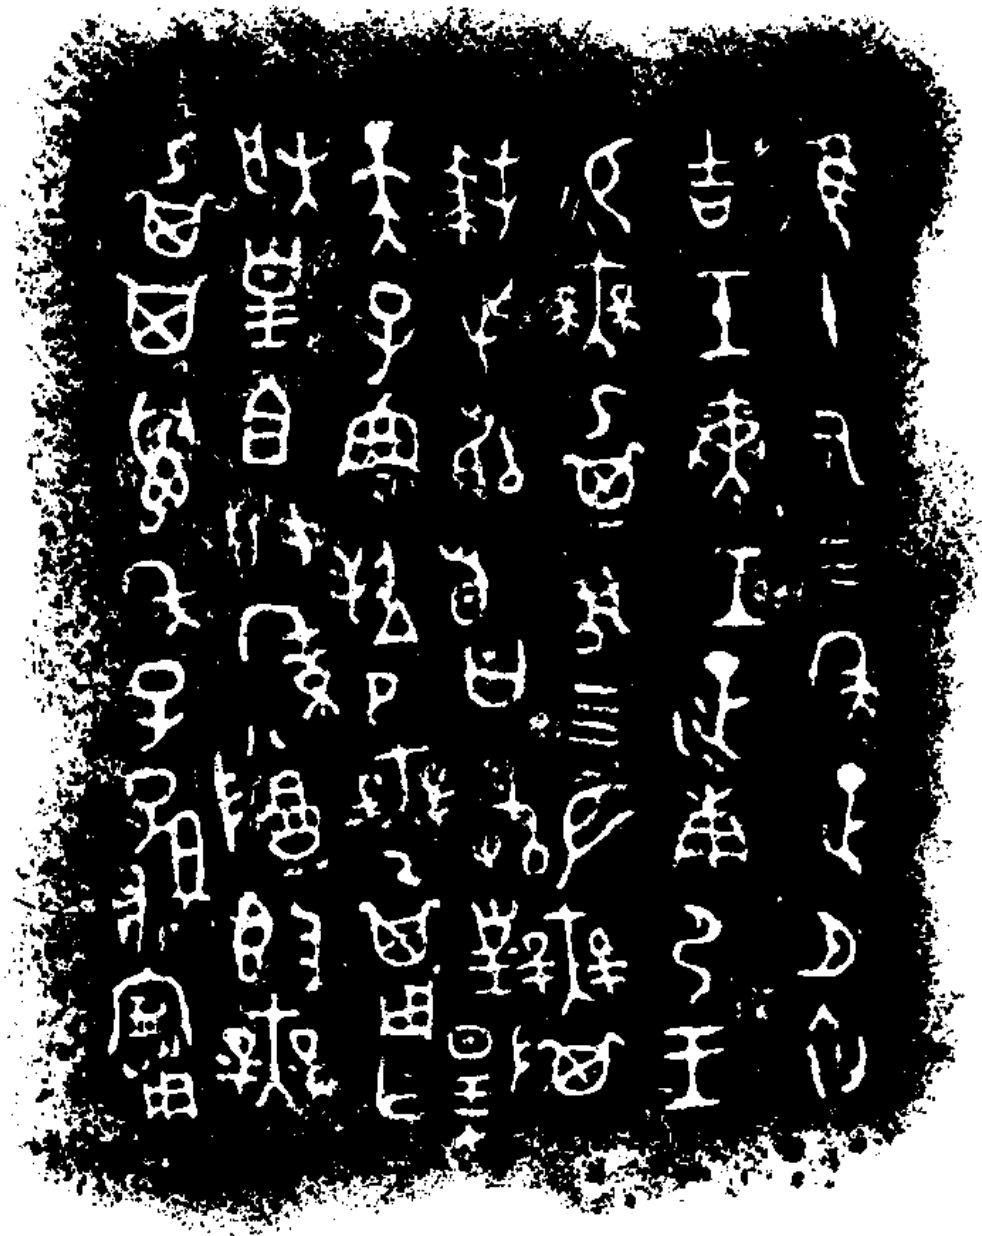 隹十又三年正月初
吉壬寅王征南尸王
易無㠱馬四匹無㠱
拜手𩒨首曰敢對揚
天子魯休令無㠱用乍
朕皇且釐季尊𣪘無
㠱其萬年子孫永寶用